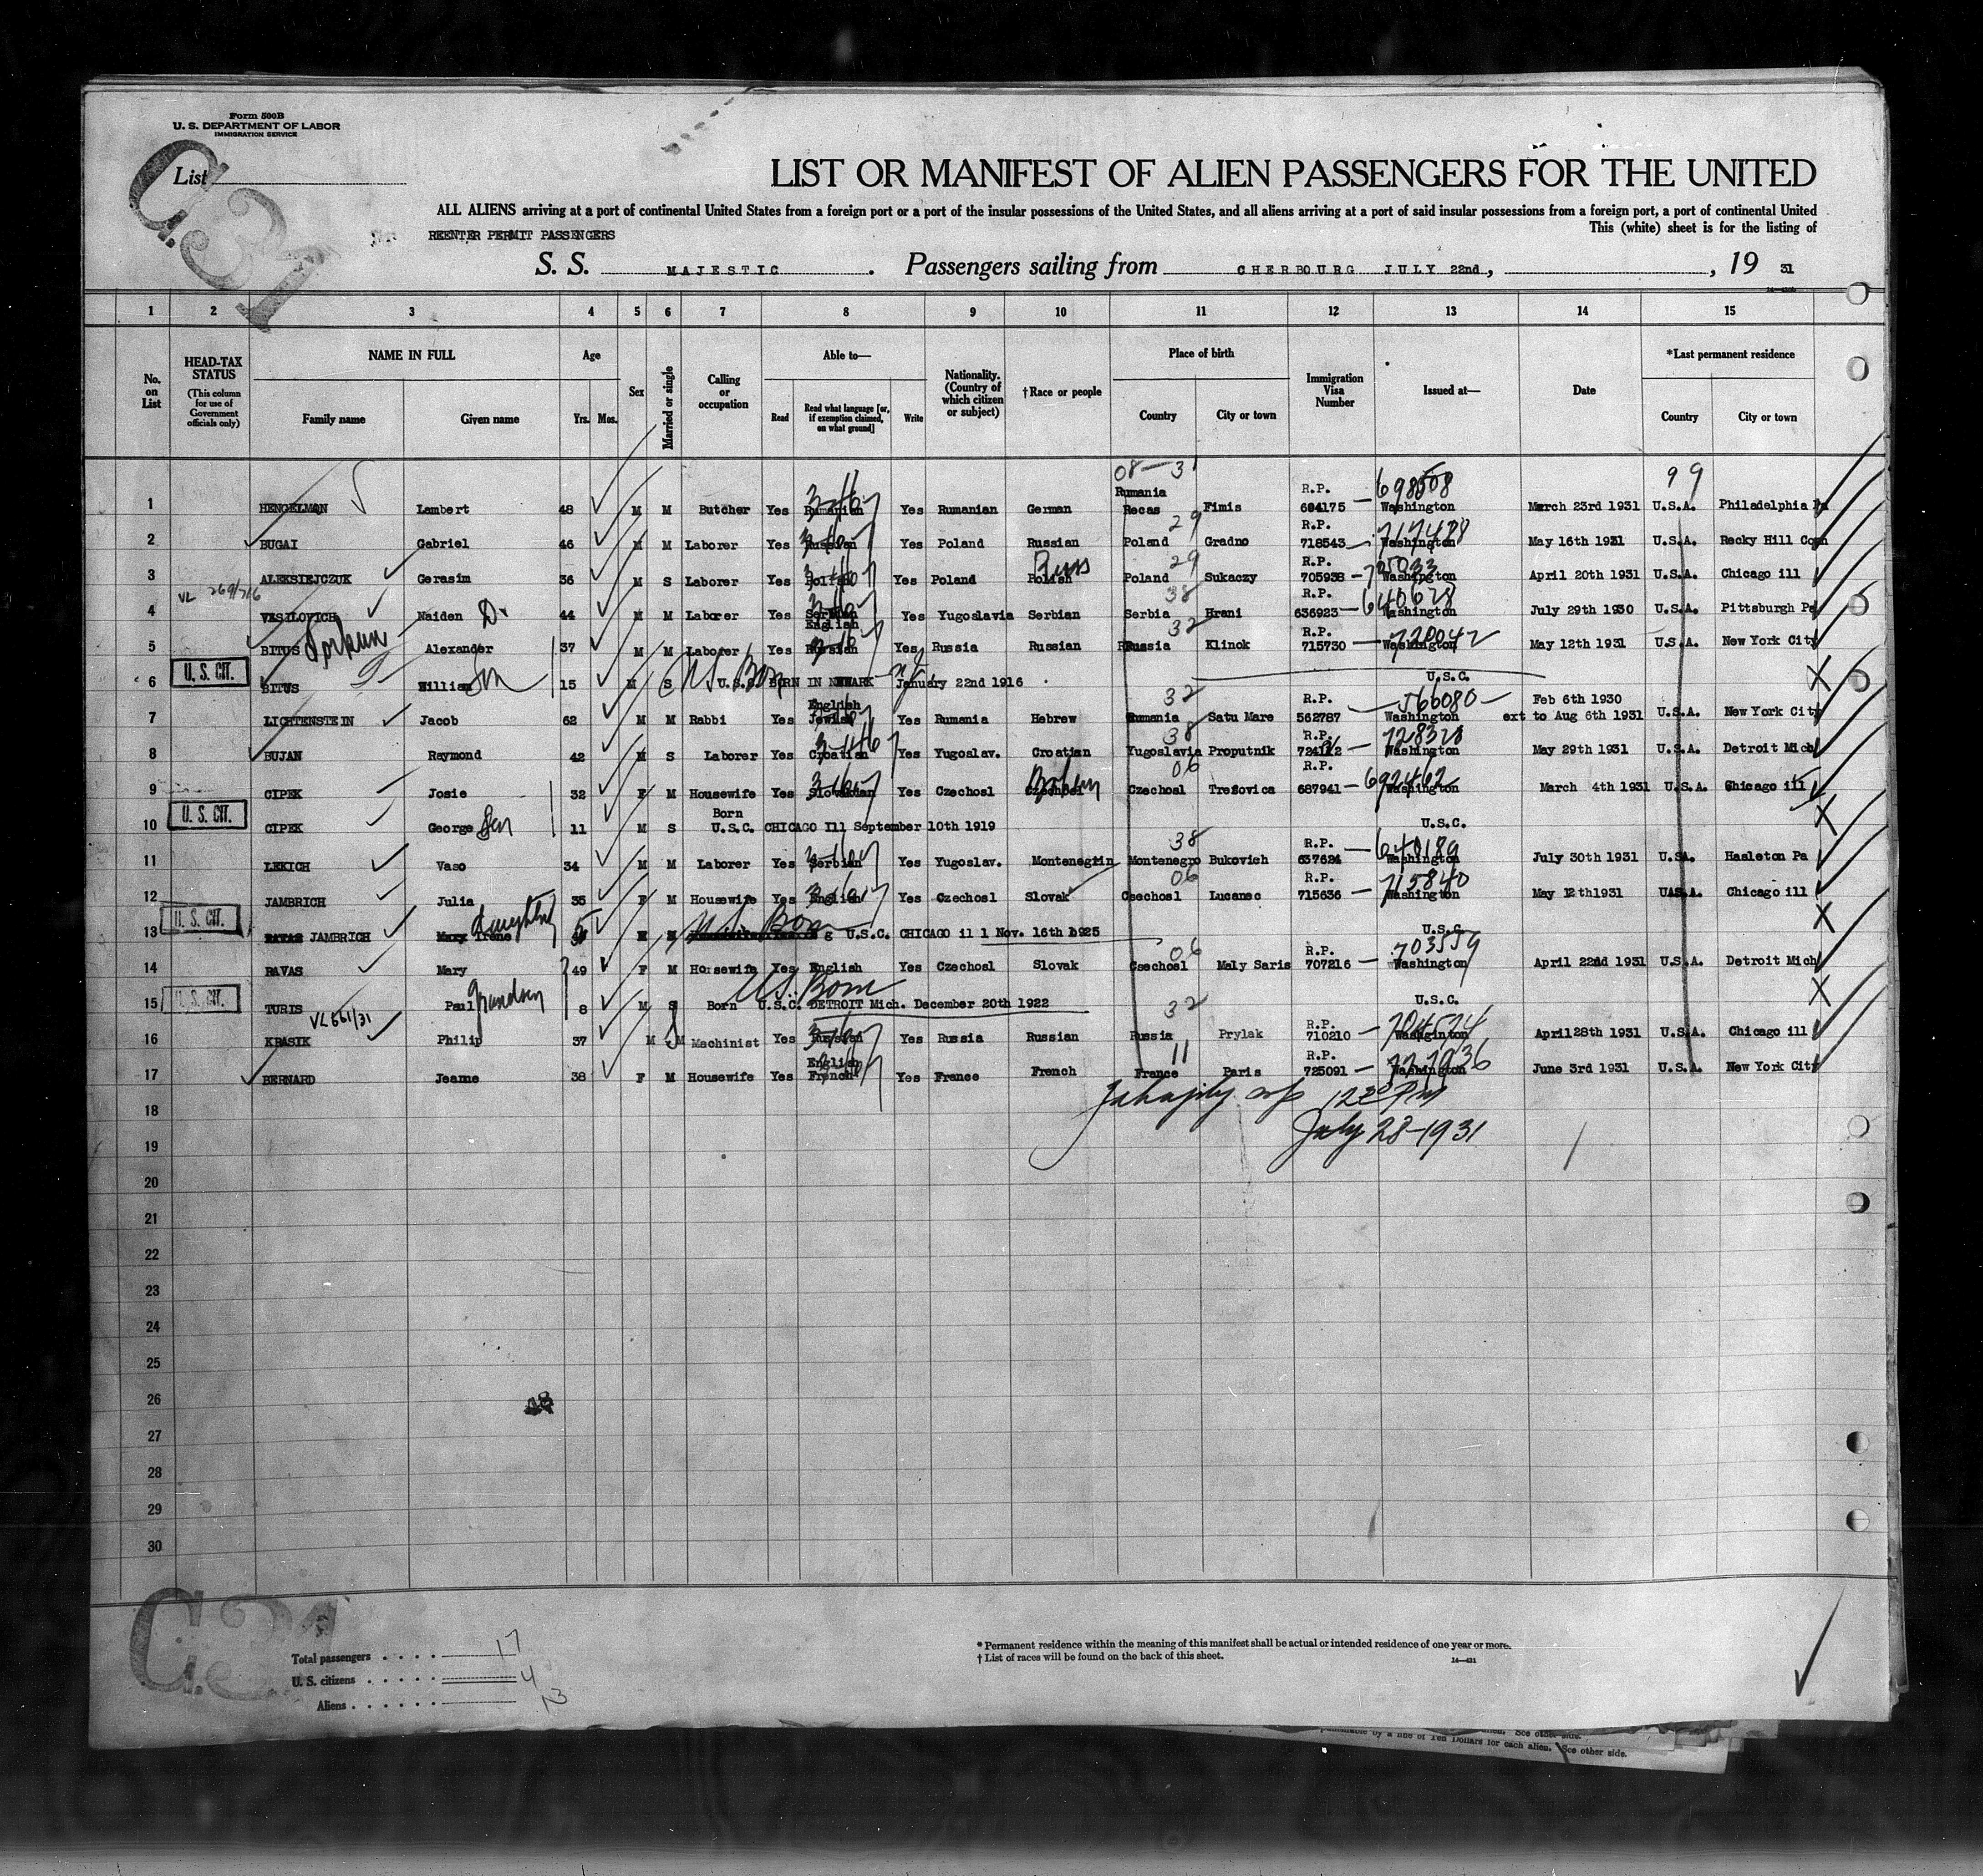 Form 500B
U. S. DEPARTMENT OF LABOR
IMMIGRATION SERVICE
List
LIST OR MANIFEST OF ALIEN PASSENGERS FOR THE UNITED
ALL ALIENS arriving at a port of continental United States from a foreign port or a port of the insular possessions of the United States, and all aliens arriving at a port of said insular possessions from a foreign port, a port of continental United
REENTER PERMIT PASSENGERS This (white) sheet is for the listing of
S. S. MAJESTIC . Passengers sailing from CHERBOURG JULY 22nd, , 19 31
1 2 3 4 5 6 7 8 9 10 11 12 13 14 15
No. on List
HEAD-TAX STATUS (This column for use of Government officials only)
NAME IN FULL Family name Given name
Age Yrs. Mos.
Sex
Married or single
Calling or occupation
Able to— Read Read what language [or, if exemption claimed, on what ground] Write
Nationality. (Country of which citizen or subject)
†Race or people
Place of birth Country City or town
Immigration Visa Number
Issued at—
Date
*Last permanent residence Country City or town
08-31 99
1 HENGELMAN Lambert 48 M M Butcher Yes Rumanian Yes Rumanian German Rumania Recas Fimis R.P. 694175 698508 Washington March 23rd 1931 U.S.A. Philadelphia Pa
2 BUGAI Gabriel 46 M M Laborer Yes Russian Yes Poland Russian Poland 29 Gradno R.P. 718543 717488 Washington May 16th 1931 U.S.A. Rocky Hill Conn
3 ALEKSIEJCZUK Gerasim 36 M S Laborer Yes Polish Yes Poland Polish Russ Poland 29 Sukaczy R.P. 705938 Washington April 20th 1931 U.S.A. Chicago ill
VL 269/716
4 VASILOVICH Naiden 44 M M Laborer Yes Serbian Yes Yugoslavia Serbian Serbia 38 Hrani R.P. 636923 640678 Washington July 29th 1930 U.S.A. Pittsburgh Pa
5 BITUS Alexander 37 M M Laborer Yes English Russian Yes Russia Russian Russia 32 Klinok R.P. 715730 720042 Washington May 12th 1931 U.S.A. New York City
U. S. CIT.
6 BITUS William Son 15 M S U.S. Born U.S.C. BORN IN NEWARK N.J. January 22nd 1916 U.S.C. X
7 LICHTENSTEIN Jacob 62 M M Rabbi Yes English Jewish Yes Rumania Hebrew Rumania 32 Satu Mare R.P. 562787 566080 Washington Feb 6th 1930 ext to Aug 6th 1931 U.S.A. New York City
8 BUJAN Raymond 42 M S Laborer Yes Croatian Yes Yugoslav. Croatian Yugoslavia 38 Proputnik R.P. 724112 Washington May 29th 1931 U.S.A. Detroit Mich
9 CIPEK Josie 32 F M Housewife Yes Slovakian Yes Czechosl Czechosl Bohem Czechosl 06 Tresovica R.P. 687941 692462 Washington March 4th 1931 U.S.A. Chicago ill
U. S. CIT.
10 CIPEK George Son 11 M S Born U.S.C. CHICAGO Ill September 10th 1919 U.S.C. X
11 LEKICH Vaso 34 M M Laborer Yes Serbian Yes Yugoslav. Montenegrin Montenegro 38 Bukovich R.P. 637624 640189 Washington July 30th 1931 U.SA. Hasleton Pa
12 JAMBRICH Julia 35 F M Housewife Yes English Yes Czechosl Slovak Czechosl 06 Lucanec R.P. 715636 715840 Washington May 12th1931 UAS.A. Chicago ill
U. S. CIT.
13 RAVAS JAMBRICH Mary Irene Daughter 5 U.S. Born U.S.C. CHICAGO ill Nov. 16th 1925 U.S.C. X
14 RAVAS Mary 49 F M Housewife Yes English Yes Czechosl Slovak Czechosl 06 Maly Saris R.P. 707216 703559 Washington April 22nd 1931 U.S.A. Detroit Mich
U. S. CIT.
15 TURIS Paul Grandson 8 M S U.S. Born Born U.S.C. DETROIT Mich. December 20th 1922 U.S.C. X
VL 561/31
16 KRASIK Philip 37 M M Machinist Yes Russian Yes Russia Russian Russia 32 Prylak R.P. 710210 704574 Washington April28th 1931 U.S.A. Chicago ill
17 BERNARD Jeanne 38 F M Housewife Yes English French Yes France French France 11 Paris R.P. 725091 727936 Washington June 3rd 1931 U.S.A. New York City
18 12 30 PM
19 July 28-1931
20
21
22
23
24
25
26
27
28
29
30
Total passengers 17
U. S. citizens 4
Aliens 13
* Permanent residence within the meaning of this manifest shall be actual or intended residence of one year or more.
† List of races will be found on the back of this sheet.
14—431
See other side.
punishable by a fine of Ten Dollars for each alien. See other side.